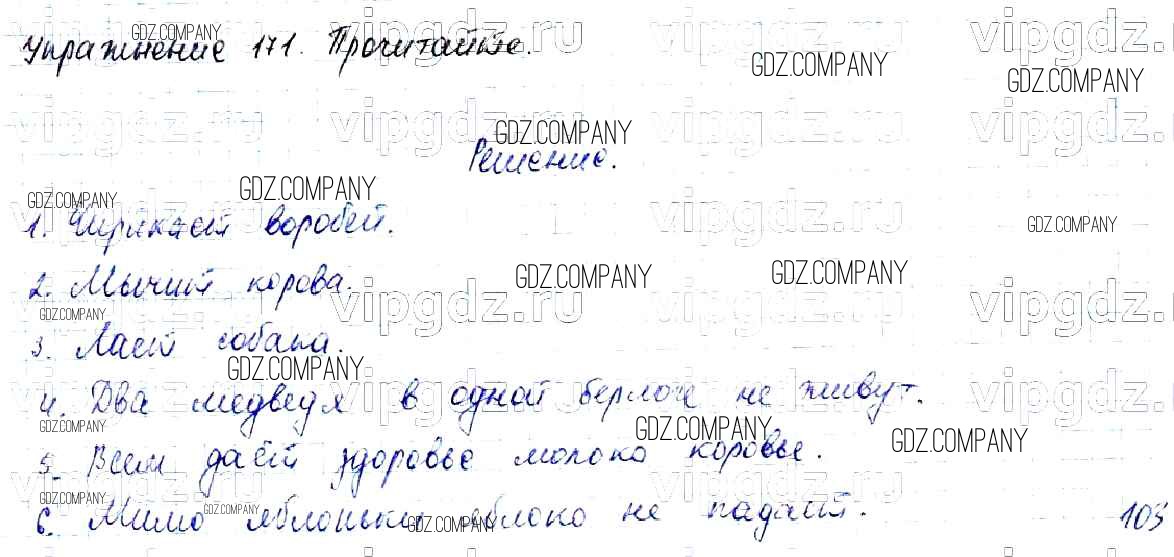 Упражнение 171. Прочитайте.
Решение.
1. Чирикает воробей.
2. Мычит корова.
3. Лает собака.
4. Два медведя в одной берлоге не живут.
5. Всем даёт здоровье молоко коровье.
6. Мимо яблоньки яблоко не падает.
103